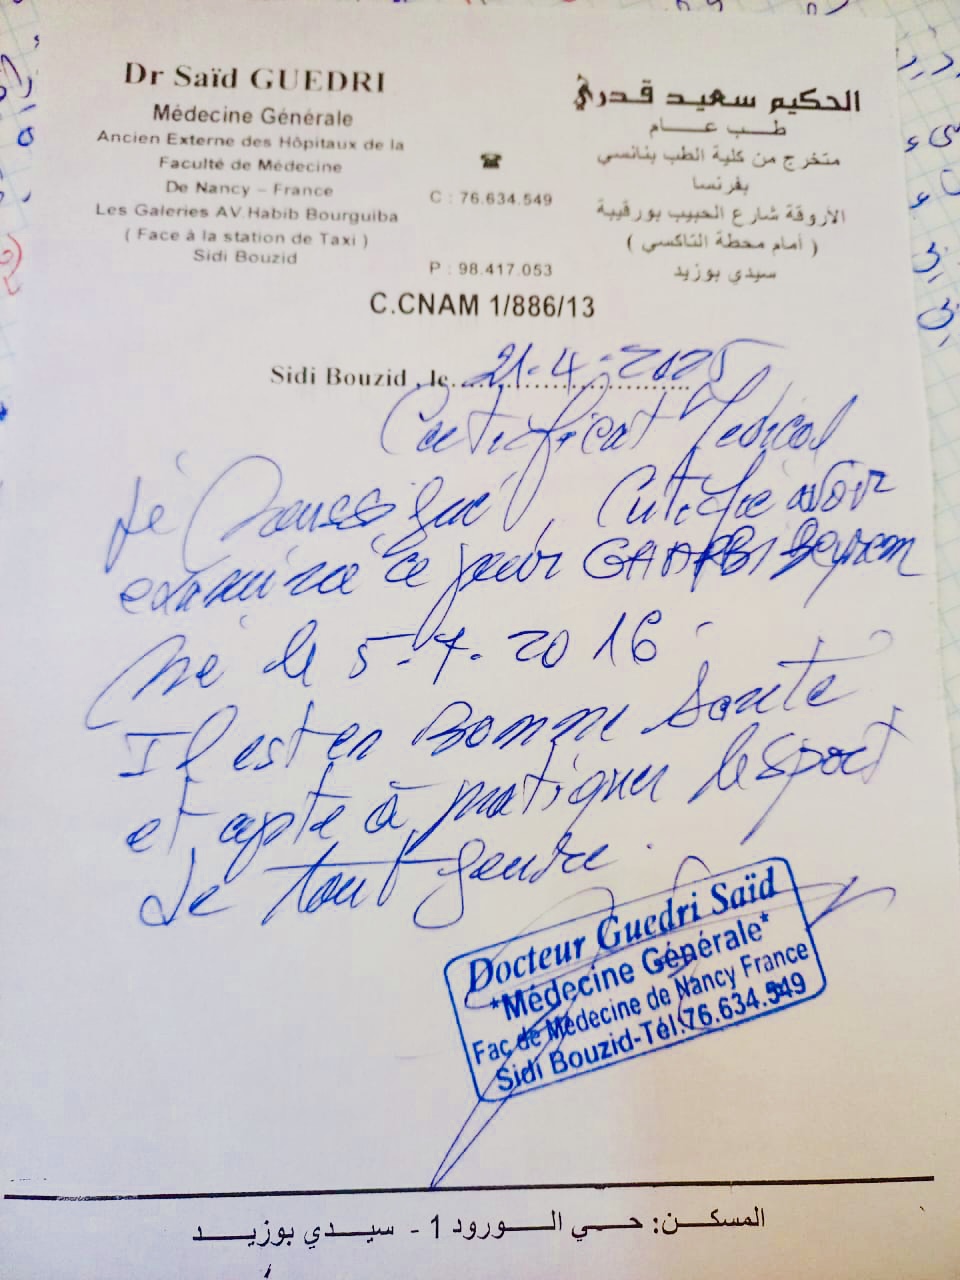 Dr Saïd GUEDRI
Médecine Générale
Ancien Externe des Hôpitaux de la
Faculté de Médecine
De Nancy – France
Les Galeries AV.Habib Bourguiba
( Face à la station de Taxi )
Sidi Bouzid
C : 76.634.549
P : 98.417.053
الحكيم سعيد قدري
طب عام
متخرج من كلية الطب بنانسي
بفرنسا
الأروقة شارع الحبيب بورقيبة
( أمام محطة التاكسي )
سيدي بوزيد
C.CNAM 1/886/13
Sidi Bouzid , le 21.4.2025
Certificat Médical
Je Soussigné, Certifie avoir
examiné ce jour GHARBI
Né le 5-7-2016
Il est en Bonne Santé
et apte à pratiquer le sport
de tout genre.
Docteur Guedri Saïd
*Médecine Générale*
Fac de Médecine de Nancy France
Sidi Bouzid-Tél:76.634.549
المسكن: حي الورود 1 - سيدي بوزيد